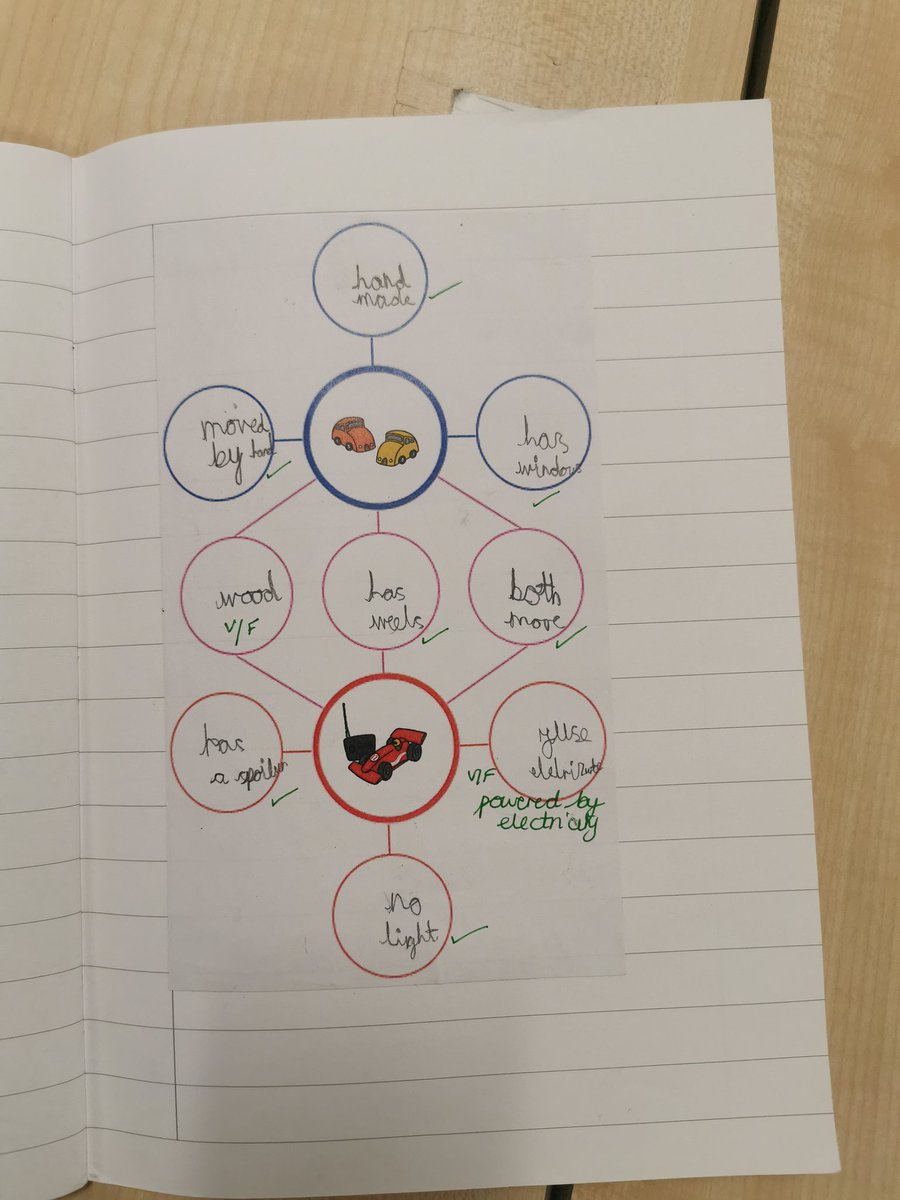 hand
made
moved
by hand
has
windows
wood
V/F
has
weels
both
move
has
a spoiler
yuse
V/F
powered by
electricity
no
light